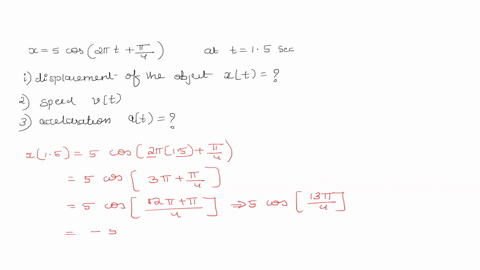 x = 5 cos(2πt + π/4) at t = 1.5 sec
i) displacement of the object x(t) = ?
2) speed v(t)
3) acceleration a(t) = ?
x(1.5) = 5 cos(2π(1.5) + π/4)
= 5 cos[3π + π/4]
= 5 cos[12π + π/4] ⇒ 5 cos[13π/4]
= - 5